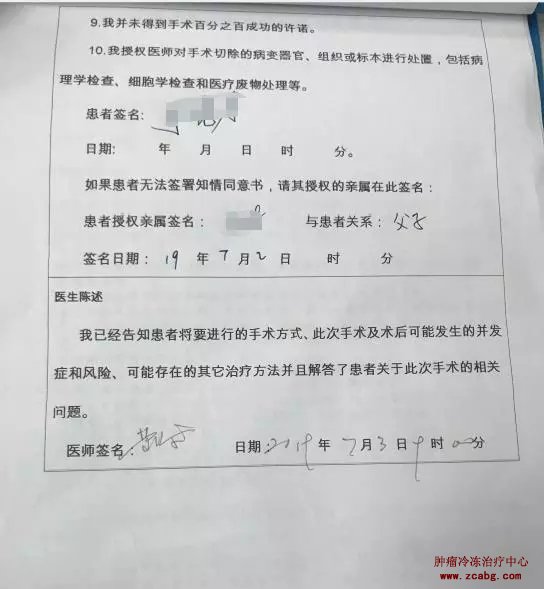 9.我并未得到手术百分之百成功的许诺。
10.我授权医师对手术切除的病变器官、组织或标本进行处置，包括病
理学检查、细胞学检查和医疗废物处理等。
患者签名：
日期： 年 月 日 时 分。
如果患者无法签署知情同意书，请其授权的亲属在此签名：
患者授权亲属签名： 与患者关系：父子
签名日期：19 年 7 月 2 日 时 分
医生陈述
我已经告知患者将要进行的手术方式、此次手术及术后可能发生的并发
症和风险、可能存在的其它治疗方法并且解答了患者关于此次手术的相关
问题。
医师签名： 日期：2019 年 7 月 3 日 9 时 00 分
肿瘤冷冻治疗中心
www.zcabg.com